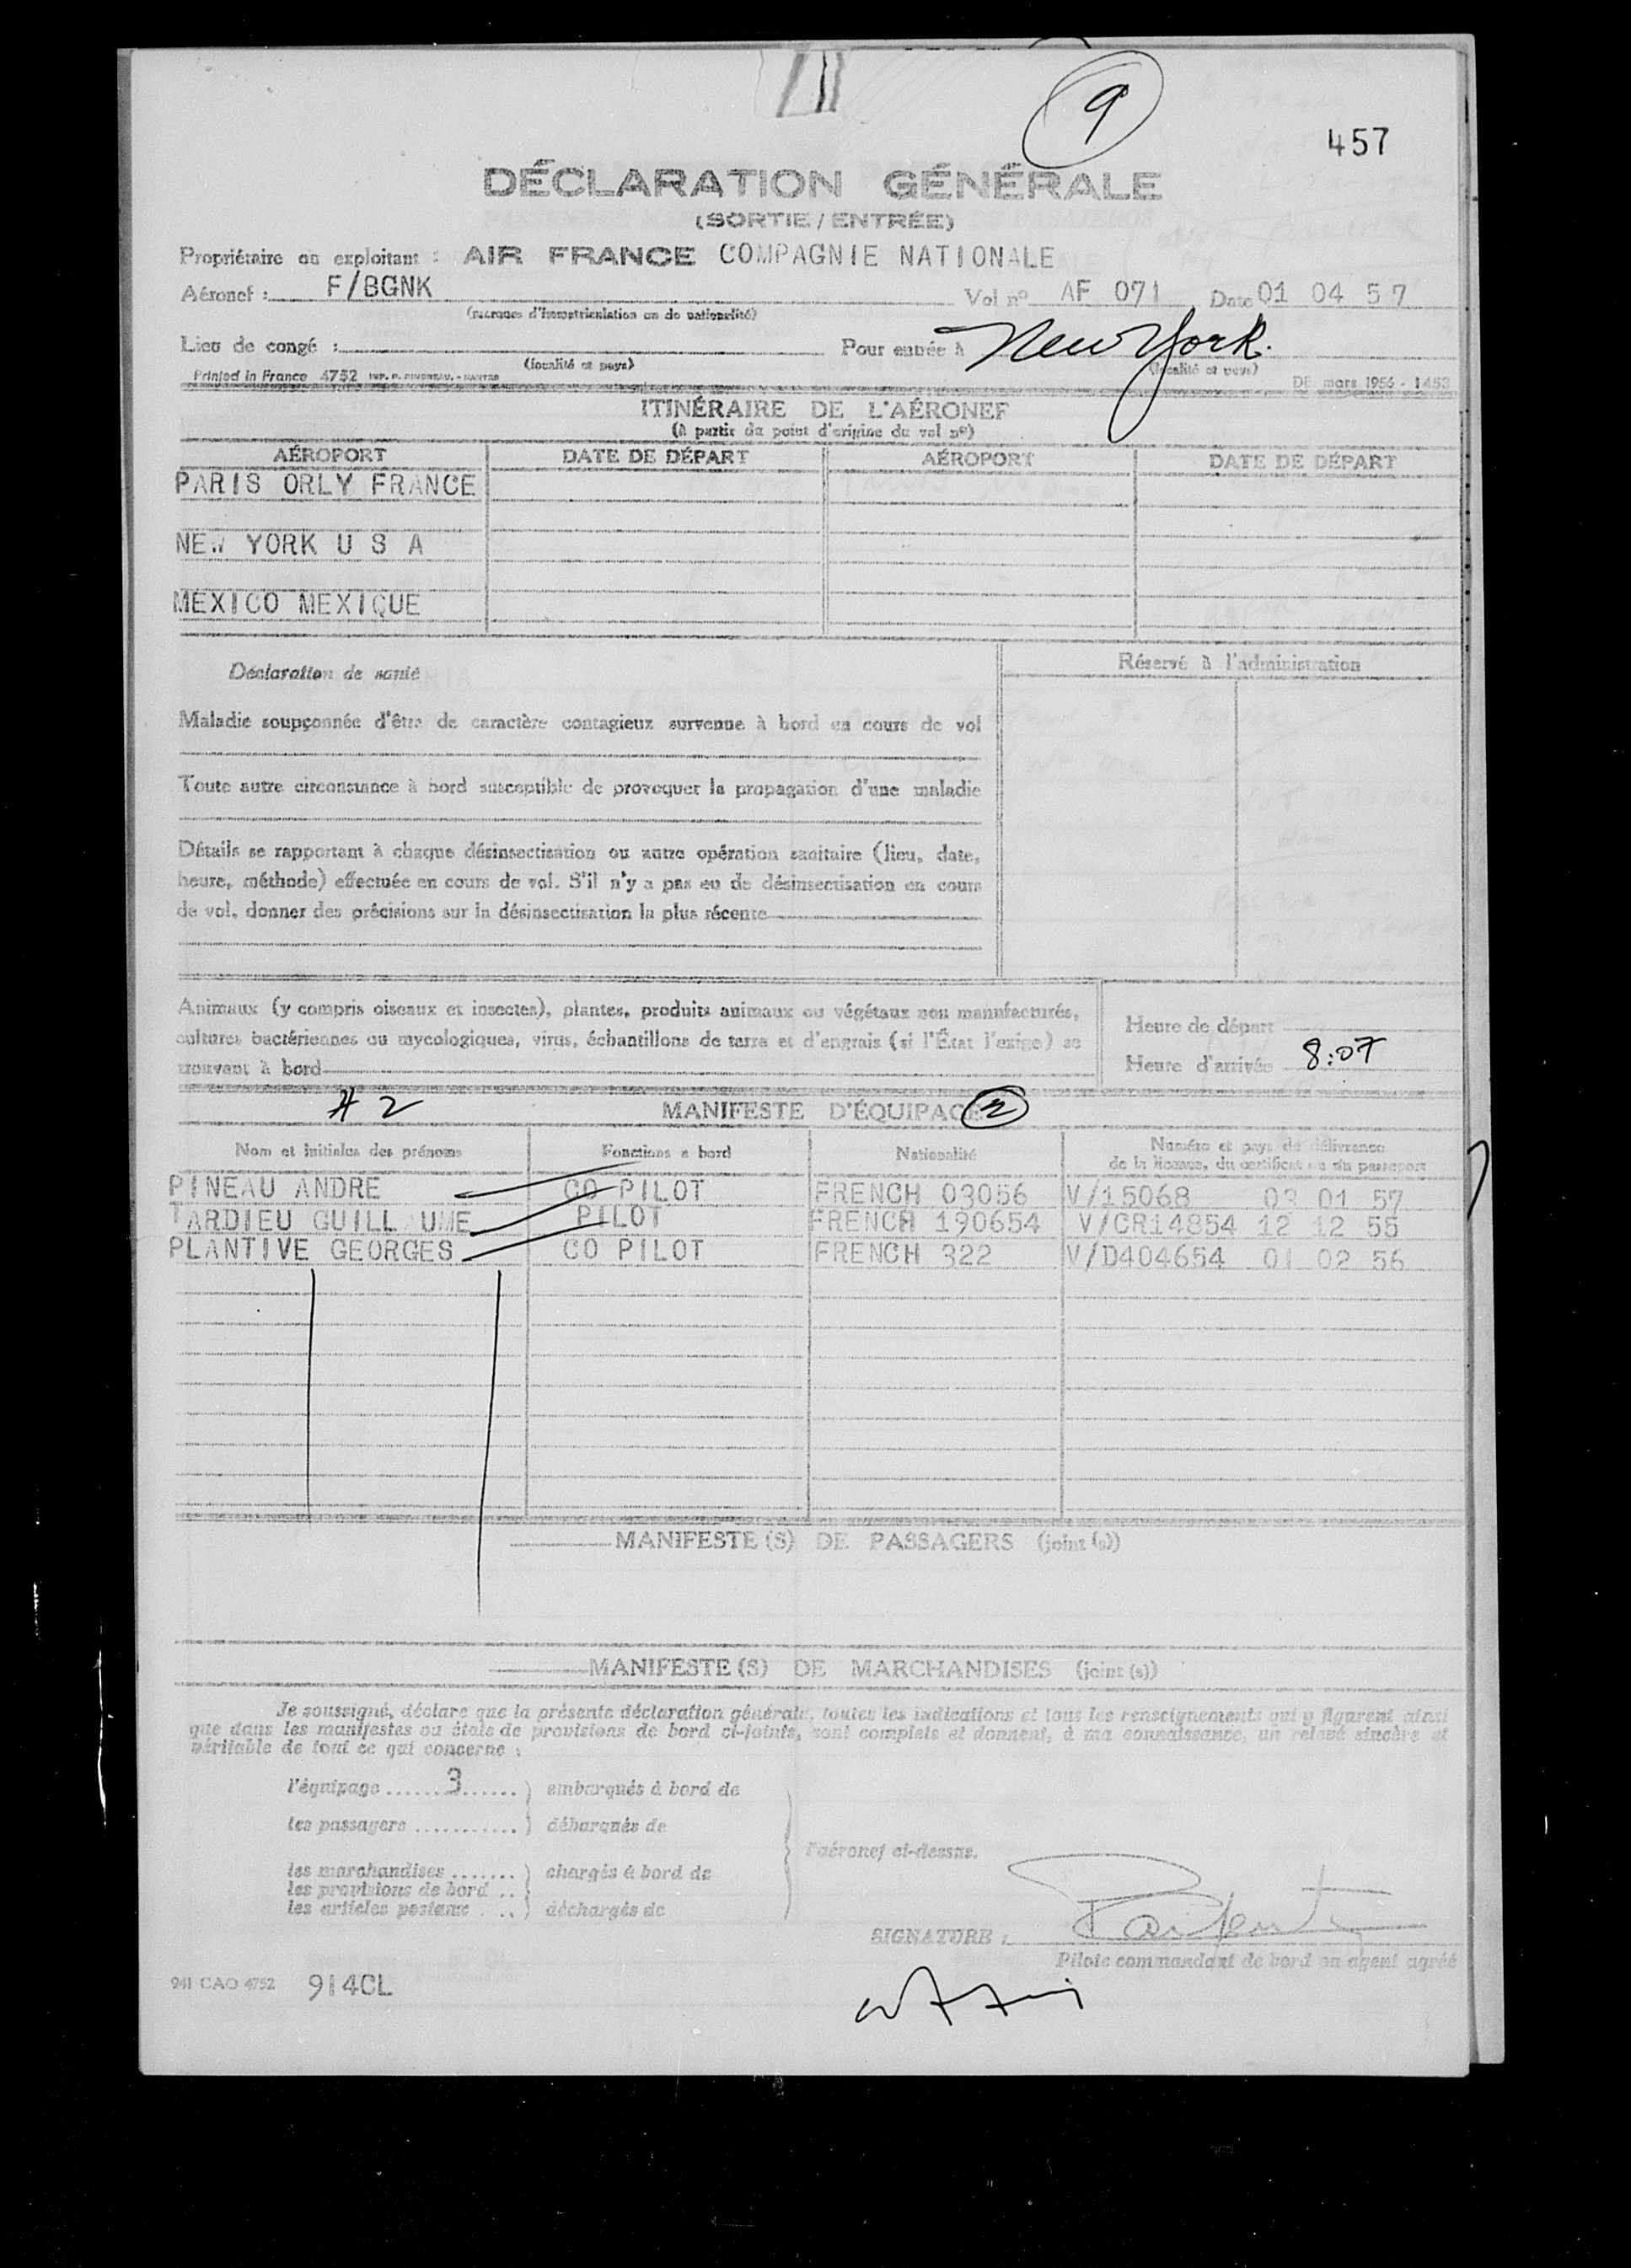 9
457
DÉCLARATION GÉNÉRALE
(SORTIE / ENTRÉE)
Propriétaire ou exploitant : AIR FRANCE COMPAGNIE NATIONALE
Aéronef : F/BGNK Vol nº AF 071 Date 01 04 57
(marques d'immatriculation ou de nationalité)
Lieu de congé : Pour entrée à New York.
(localité et pays) (localité et pays)
Printed in France 4752 DE mars 1956 - 1453
ITINÉRAIRE DE L'AÉRONEF
(à partir du point d'origine du vol nº)
AÉROPORT DATE DE DÉPART AÉROPORT DATE DE DÉPART
PARIS ORLY FRANCE
NEW YORK U S A
MEXICO MEXIQUE
Déclaration de santé Réservé à l'administration
Maladie soupçonnée d'être de caractère contagieux survenue à bord en cours de vol
Toute autre circonstance à bord susceptible de provoquer la propagation d'une maladie
Détails se rapportant à chaque désinsectisation ou autre opération sanitaire (lieu, date,
heure, méthode) effectuée en cours de vol. S'il n'y a pas eu de désinsectisation en cours
de vol, donner des précisions sur la désinsectisation la plus récente
Animaux (y compris oiseaux et insectes), plantes, produits animaux ou végétaux non manufacturés,
cultures bactériennes ou mycologiques, virus, échantillons de terre et d'engrais (si l'État l'exige) se
trouvant à bord
Heure de départ
Heure d'arrivée 8:07
# 2 MANIFESTE D'ÉQUIPAGE 2
Nom et initiales des prénoms Fonctions à bord Nationalité Numéro et pays de délivrance
de la licence, du certificat ou du passeport
PINEAU ANDRE CO PILOT FRENCH 03056 V/15068 03 01 57
TARDIEU GUILL UME PILOT FRENCH 190654 V/CR14854 12 12 55
PLANTIVE GEORGES CO PILOT FRENCH 322 V/D404654 01 02 56
MANIFESTE (S) DE PASSAGERS (joint (s))
MANIFESTE (S) DE MARCHANDISES (joint (s))
Je soussigné, déclare que la présente déclaration générale, toutes les indications et tous les renseignements qui y figurent ainsi
que dans les manifestes ou états de provisions de bord ci-joints, sont complets et donnent, à ma connaissance, un relevé sincère et
véritable de tout ce qui concerne :
l'équipage ....... 3 ...... ) embarqués à bord de
les passagers ........... ) débarqués de
l'aéronef ci-dessus.
les marchandises ....... ) chargés à bord de
les provisions de bord .. )
les articles postaux . .. ) déchargés de
SIGNATURE :
Pilote commandant de bord ou agent agréé
941 CAO 4752 914CL